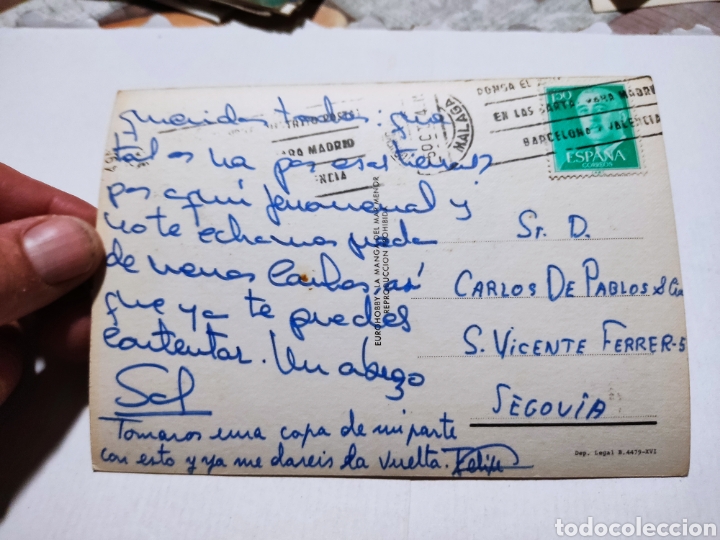 Queridos todos: que
tal os va por esas tierras
por aquí fenomenal y
no te echamos nada
de menos Carlos así
que ya te puedes
contentar. Un abrazo
Sol
Tomaros una copa de mi parte
con esto y ya me dareis la vuelta. Felipe
EUROHOBBY - LA MANGA DEL MAR MENOR
REPRODUCCION PROHIBIDA
PARA MADRID
MALAGA
PONGA EL
EN LAS CARTAS PARA MADRID
BARCELONA Y VALENCIA
ESPAÑA
CORREOS
Sr. D.
CARLOS DE PABLOS
S. VICENTE FERRER-5
SEGOVIA
Dep. Legal B. 4479-XVI
todocoleccion